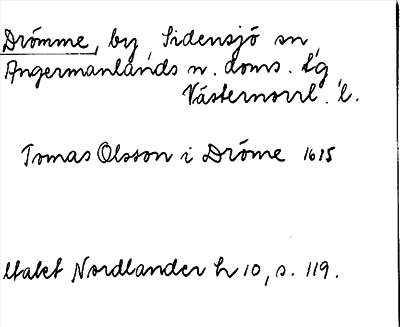 Drömme, by, Sidensjö sn,
Ångermanlands n. doms. tg,
Västernorrl. l.
Tomas Olsson i Dröme 1615
Utakt Nordlander h 10, s. 119.